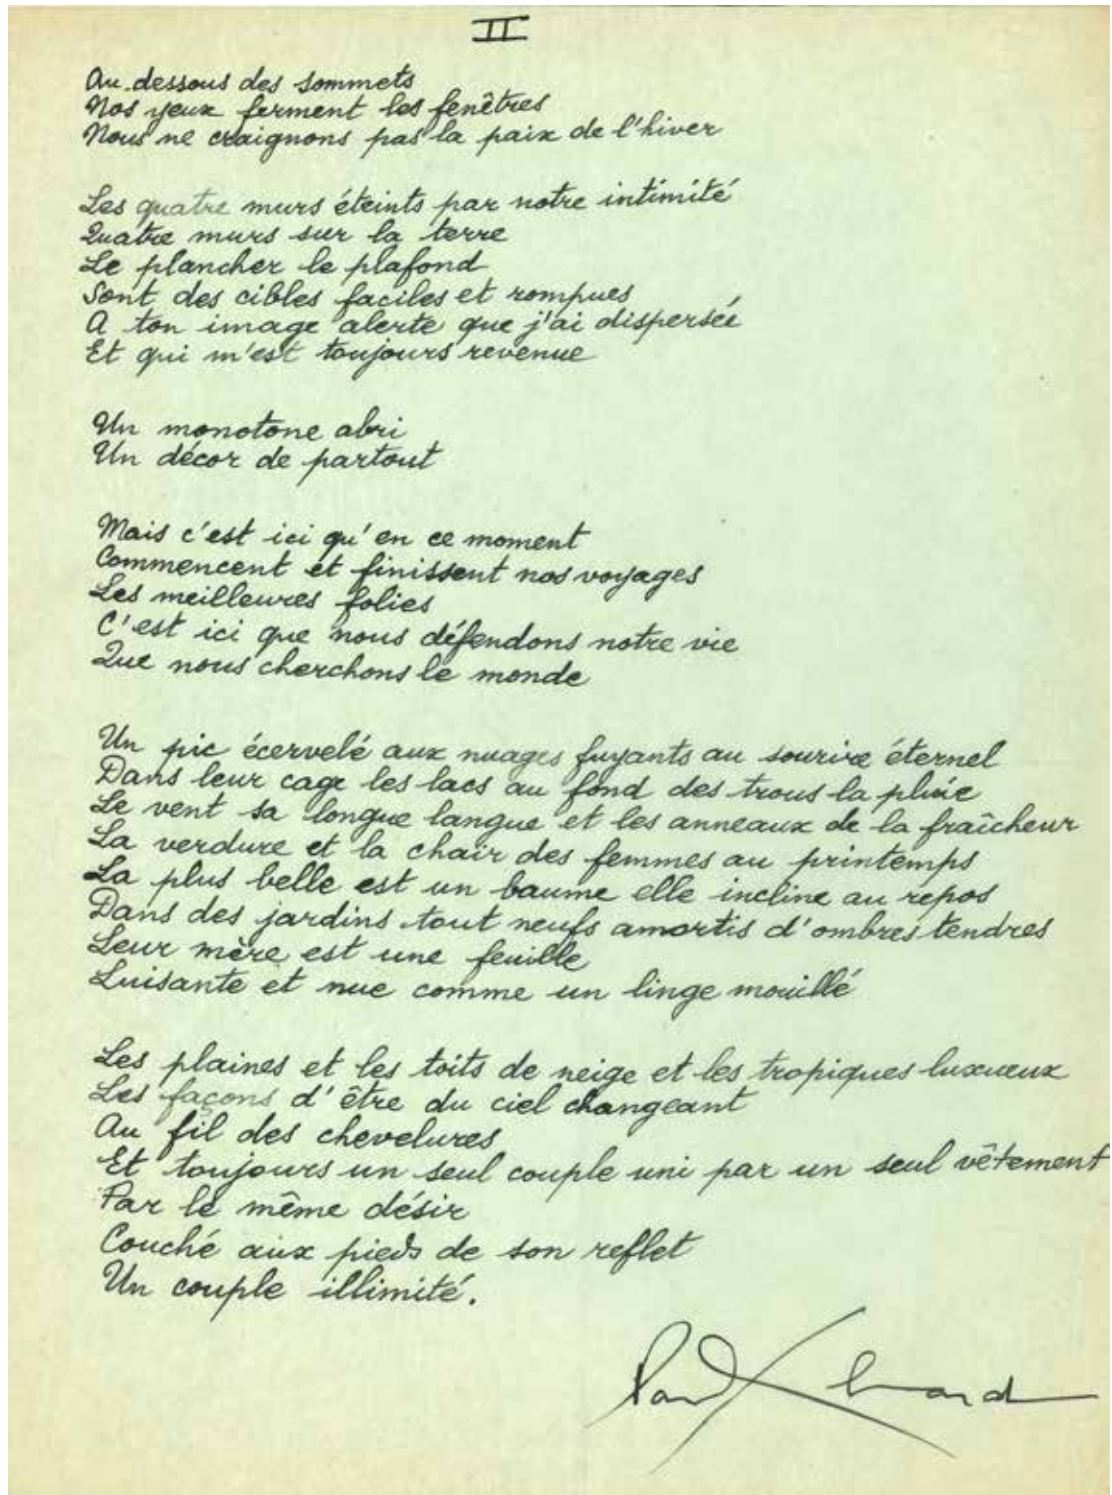 II
Au-dessous des sommets
Nos yeux ferment les fenêtres
Nous ne craignons pas la paix de l'hiver
Les quatre murs éteints par notre intimité
Quatre murs sur la terre
Le plancher le plafond
Sont des cibles faciles et rompues
A ton image alerte que j'ai dispersée
Et qui m'est toujours revenue
Un monotone abri
Un décor de partout
Mais c'est ici qu'en ce moment
Commencent et finissent nos voyages
Les meilleures folies
C'est ici que nous défendons notre vie
Que nous cherchons le monde
Un pic écervelé aux nuages fuyants au sourire éternel
Dans leur cage les lacs au fond des trous la pluie
Le vent sa longue langue et les anneaux de la fraîcheur
La verdure et la chair des femmes au printemps
La plus belle est un baume elle incline au repos
Dans des jardins tout neufs amortis d'ombres tendres
Leur mère est une feuille
Luisante et nue comme un linge mouillé
Les plaines et les toits de neige et les tropiques luxueux
Les façons d'être du ciel changeant
Au fil des chevelures
Et toujours un seul couple uni par un seul vêtement
Par le même désir
Couché aux pieds de son reflet
Un couple illimité.
Paul Eluard